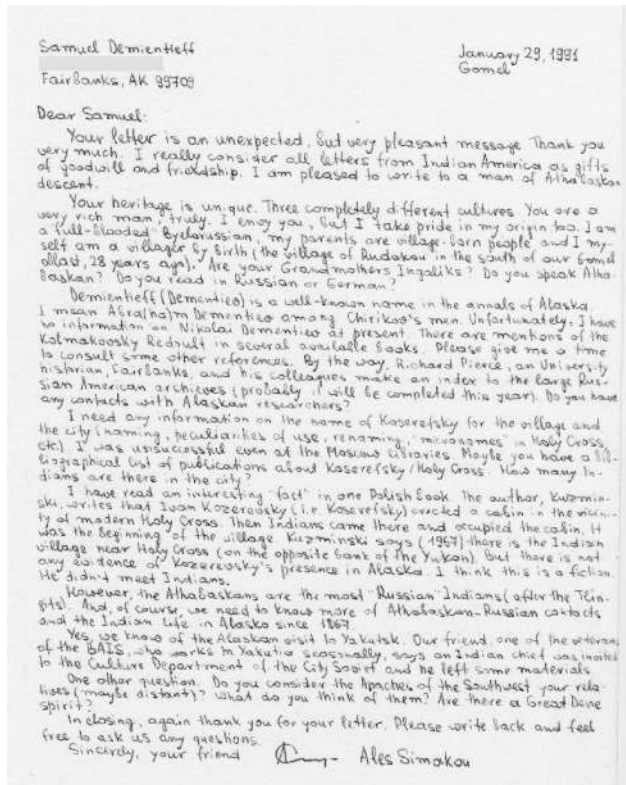 Samuel Demientieff
January 29, 1991
Gomel
Fairbanks, AK 99709
Dear Samuel:
Your letter is an unexpected, but very pleasant message. Thank you
very much. I really consider all letters from Indian America as gifts
of goodwill and friendship. I am pleased to write to a man of Athabaskan
descent.
Your heritage is unique. Three completely different cultures. You are a
very rich man, truly. I envy you, but I take pride in my origin too. I am
a "full-blooded" Byelorussian, my parents are village-born people and I my-
self am a villager by birth (the village of Rudakou in the south of our Gomel
oblast, 28 years ago). Are your Grandmothers Ingaliks? Do you speak Atha-
baskan? Do you read in Russian or German?
Demientieff (Dementiev) is a well-known name in the annals of Alaska.
I mean Abra(ha)m Dementiev among Chirikov's men. Unfortunately, I have
no information on Nikolai Dementiev at present. There are mentions of the
Kolmakovsky Redoubt in several available books. Please give me a time
to consult some other references. By the way, Richard Pierce, an University
historian, Fairbanks, and his colleagues make an index to the large Rus-
sian American archieves (probably it will be completed this year). Do you have
any contacts with Alaskan researchers?
I need any information on the name of Koserefsky for the village and
the city (naming, peculiarities of use, renaming, "micronomes" in Holy Cross,
etc.). I was unsuccessful even at the Moscow libraries. Maybe you have a bib-
liographical list of publications about Koserefsky/Holy Cross. How many In-
dians are there in the city?
I have read an interesting "fact" in one Polish book. The author, Kuzmin-
ski, writes that Ivan Kozerevsky (i.e. Koserefsky) erected a cabin in the vicini-
ty of modern Holy Cross. Then Indians came there and occupied the cabin. It
was the beginning of the village. Kuzminski says (1967) there is the Indian
village near Holy Cross (on the opposite bank of the Yukon). But there is not
any evidence of Kozerevsky's presence in Alaska. I think this is a fiction.
He didn't meet Indians.
However, the Athabaskans are the most "Russian" Indians (after the Tlin-
gits). And, of course, we need to know more of Athabaskan-Russian contacts
and the Indian life in Alaska since 1867.
Yes, we know of the Alaskan visit to Yakutsk. Our friend, one of the veterans
of the BAIS, who works in Yakutia seasonally, says an Indian chief was invited
to the Culture Department of the City Soviet and he left some materials.
One other question. Do you consider the Apaches of the Southwest your rela-
tives (maybe distant)? What do you think of them? Are there a Great Dene
spirit?
In closing, again thank you for your letter. Please write back and feel
free to ask us any questions.
Sincerely, your friend Ales Simakou